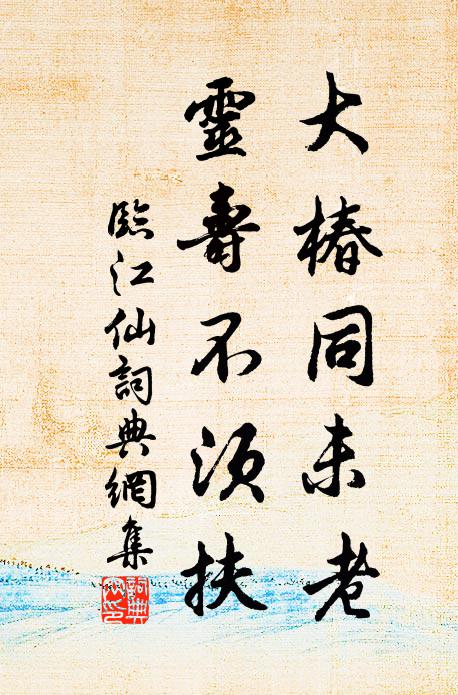 大椿同未老
靈壽不須扶
臨江仙詞典網集